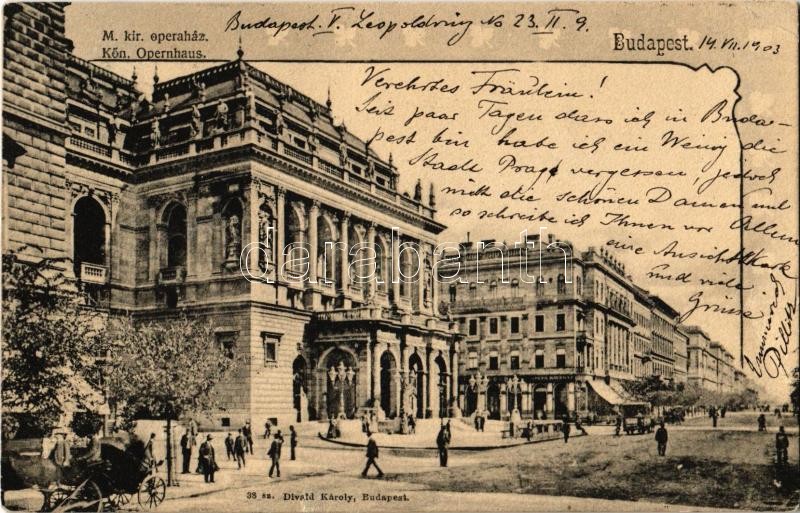 M. kir. operaház.
Kön. Opernhaus.
Budapest. V. Leopoldring No 23. II. 9.
Budapest.
14. VII. 1903
Verehrtes Fräulein!
Seit paar Tagen dass ich in Buda-
pest bin, habe ich ein Wenig die
Stadt Prag vergessen, jedoch
nicht die schönen Damen und
so schreibe ich Ihnen vor Allem
eine Ansichtskarte
und viele
Grüsse
darabanth.com
38 sz. Divald Károly, Budapest.